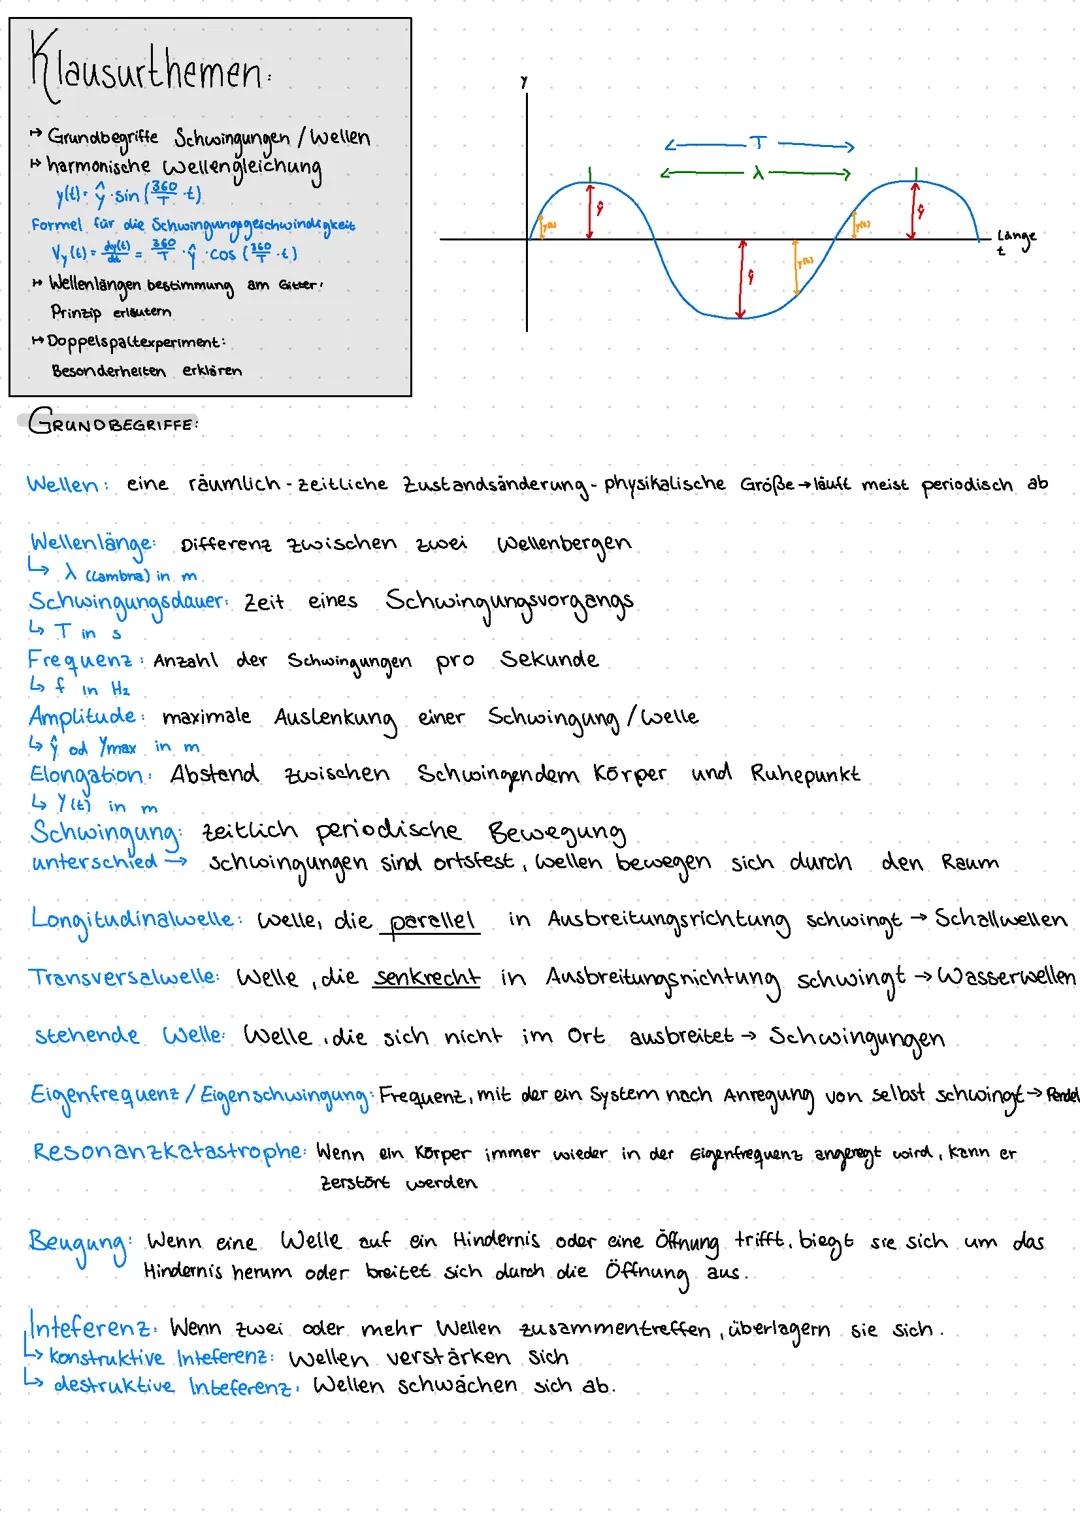 Klausurthemen:
↦ Grundbegriffe Schwingungen / Wellen
↦ harmonische Wellengleichung
y(t) = ŷ · sin (360/T · t)
Formel für die Schwingungsgeschwindigkeit
Vy (t) = dy(t)/dt = 360/T · ŷ · cos (360/T · t)
↦ Wellenlängenbestimmung am Gitter:
Prinzip erläutern
↦ Doppelspaltexperiment:
Besonderheiten erklären
y
T
λ
ŷ
ŷ
ŷ
y(t)
y(t)
y(t)
Länge
t
GRUNDBEGRIFFE:
Wellen: eine räumlich-zeitliche Zustandsänderung - physikalische Größe → läuft meist periodisch ab
Wellenlänge: Differenz zwischen zwei Wellenbergen
↳ λ (Lambna) in m
Schwingungsdauer: Zeit eines Schwingungsvorgangs
↳ T in s
Frequenz: Anzahl der Schwingungen pro Sekunde
↳ f in Hz
Amplitude: maximale Auslenkung einer Schwingung / Welle
↳ ŷ od Ymax in m
Elongation: Abstand zwischen Schwingendem Körper und Ruhepunkt
↳ Y(t) in m
Schwingung: zeitlich periodische Bewegung
unterschied → schwingungen sind ortsfest, Wellen bewegen sich durch den Raum
Longitudinalwelle: Welle, die parallel in Ausbreitungsrichtung schwingt → Schallwellen
Transversalwelle: Welle, die senkrecht in Ausbreitungsrichtung schwingt → Wasserwellen
stehende Welle: Welle, die sich nicht im Ort ausbreitet → Schwingungen
Eigenfrequenz / Eigenschwingung: Frequenz, mit der ein System nach Anregung von selbst schwingt → Pendel
Resonanzkatastrophe: Wenn ein Körper immer wieder in der Eigenfrequenz angeregt wird, kann er
zerstört werden
Beugung: Wenn eine Welle auf ein Hindernis oder eine Öffnung trifft, biegt sie sich um das
Hindernis herum oder breitet sich durch die Öffnung aus.
Inteferenz: Wenn zwei oder mehr Wellen zusammentreffen, überlagern sie sich.
↳ konstruktive Inteferenz: Wellen verstärken sich
↳ destruktive Inteferenz: Wellen schwächen sich ab.